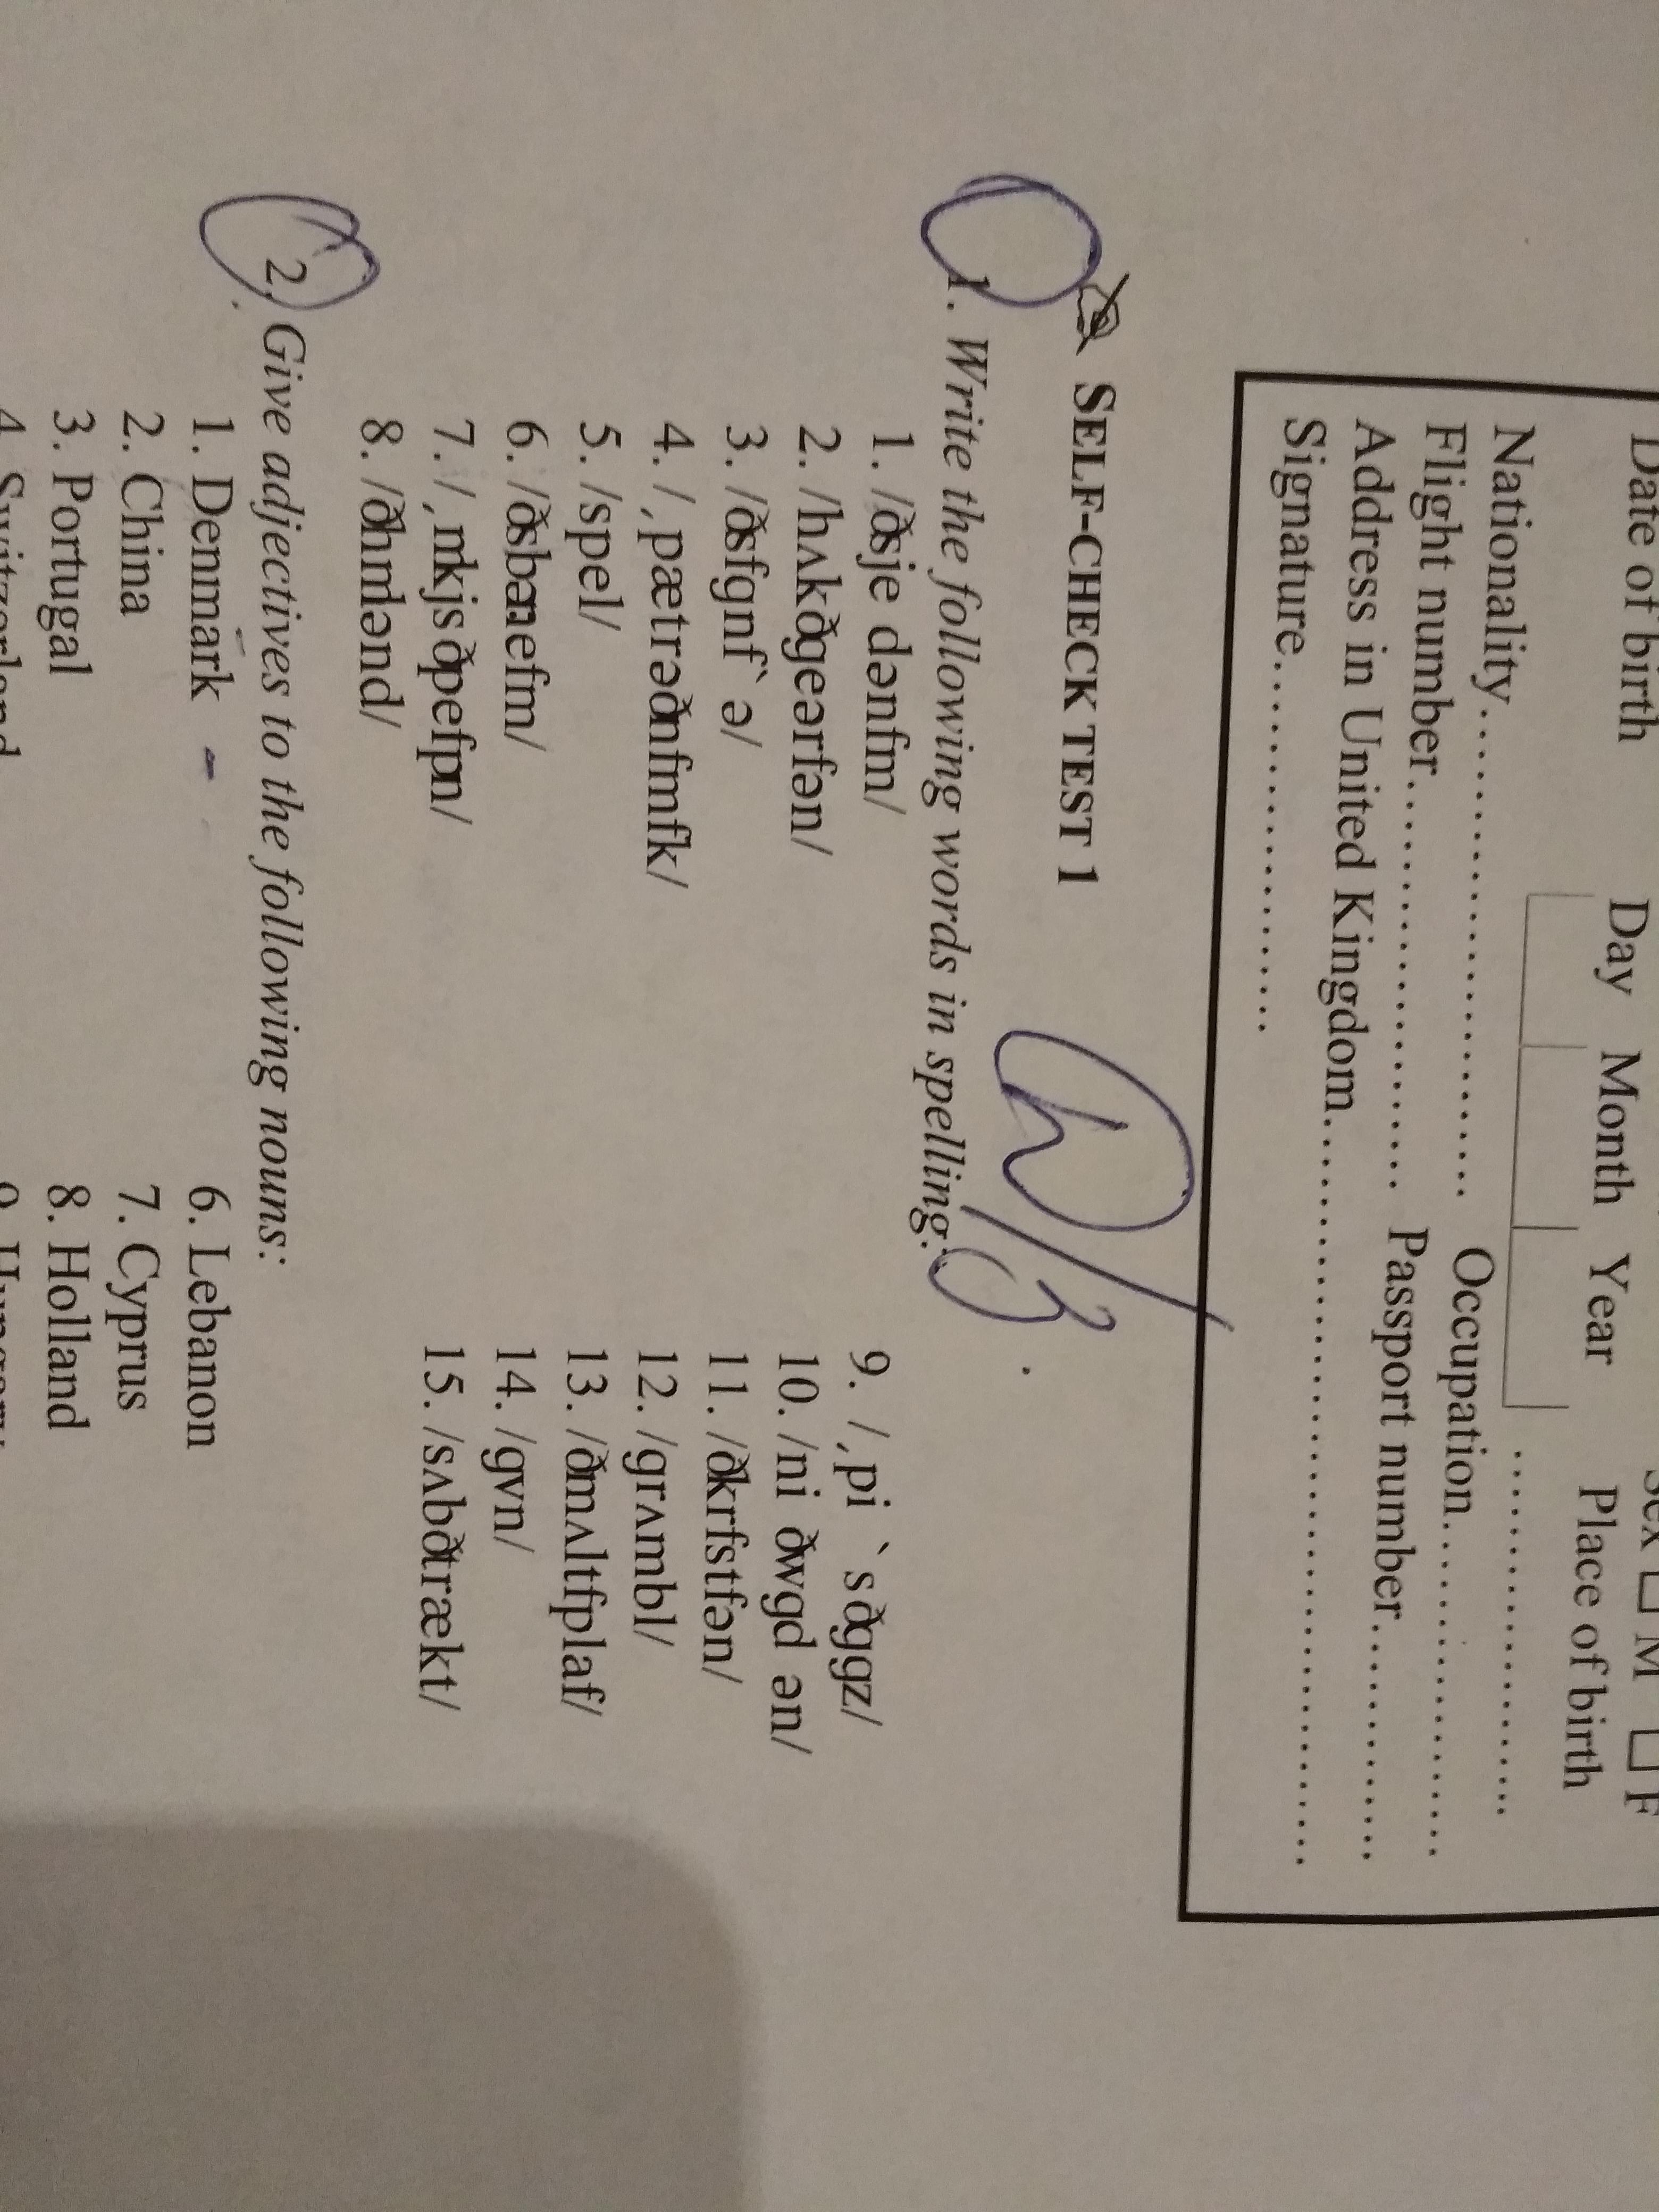 Sex □ M □ F
Date of birth Day Month Year Place of birth
Nationality.................................. Occupation........................
Flight number............................ Passport number................
Address in United Kingdom....................................................
Signature..........................
SELF-CHECK TEST 1
1. Write the following words in spelling:
1. /ðsje dənfm/
2. /hʌkðgeərfən/
3. /ðsfgnf` ə/
4. /,pætrəðnfmfk/
5. /spel/
6. /ðsbænefm/
7. /,mkjsðpefpn/
8. /ðhmdənd/
9. /,pi `sðggz/
10. /ni ðwgd ən/
11. /ðkrfstfən/
12. /grʌmbl/
13. /ðmʌltfplaf/
14. /gvn/
15. /sʌbðtrækt/
2. Give adjectives to the following nouns:
1. Denmark -
2. China
3. Portugal
4. Switzerland
6. Lebanon
7. Cyprus
8. Holland
9. Hungary